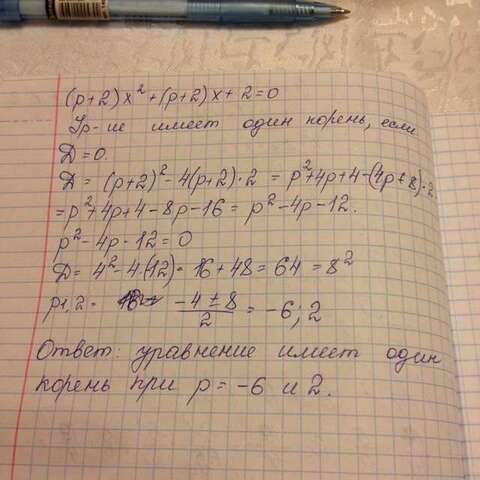 (p+2)x²+(p+2)x+2=0
Ур-ие имеет один корень, если
D=0.
D= (p+2)²-4(p+2)·2 = p²+4p+4-(4p+8)·2
=p²+4p+4-8p-16= p²-4p-12.
p²-4p-12=0
D= 4²-4·(12)= 16+48=64=8²
p1,2= (-4±8)/2 = -6; 2
Ответ: уравнение имеет один
корень при p=-6 и 2.